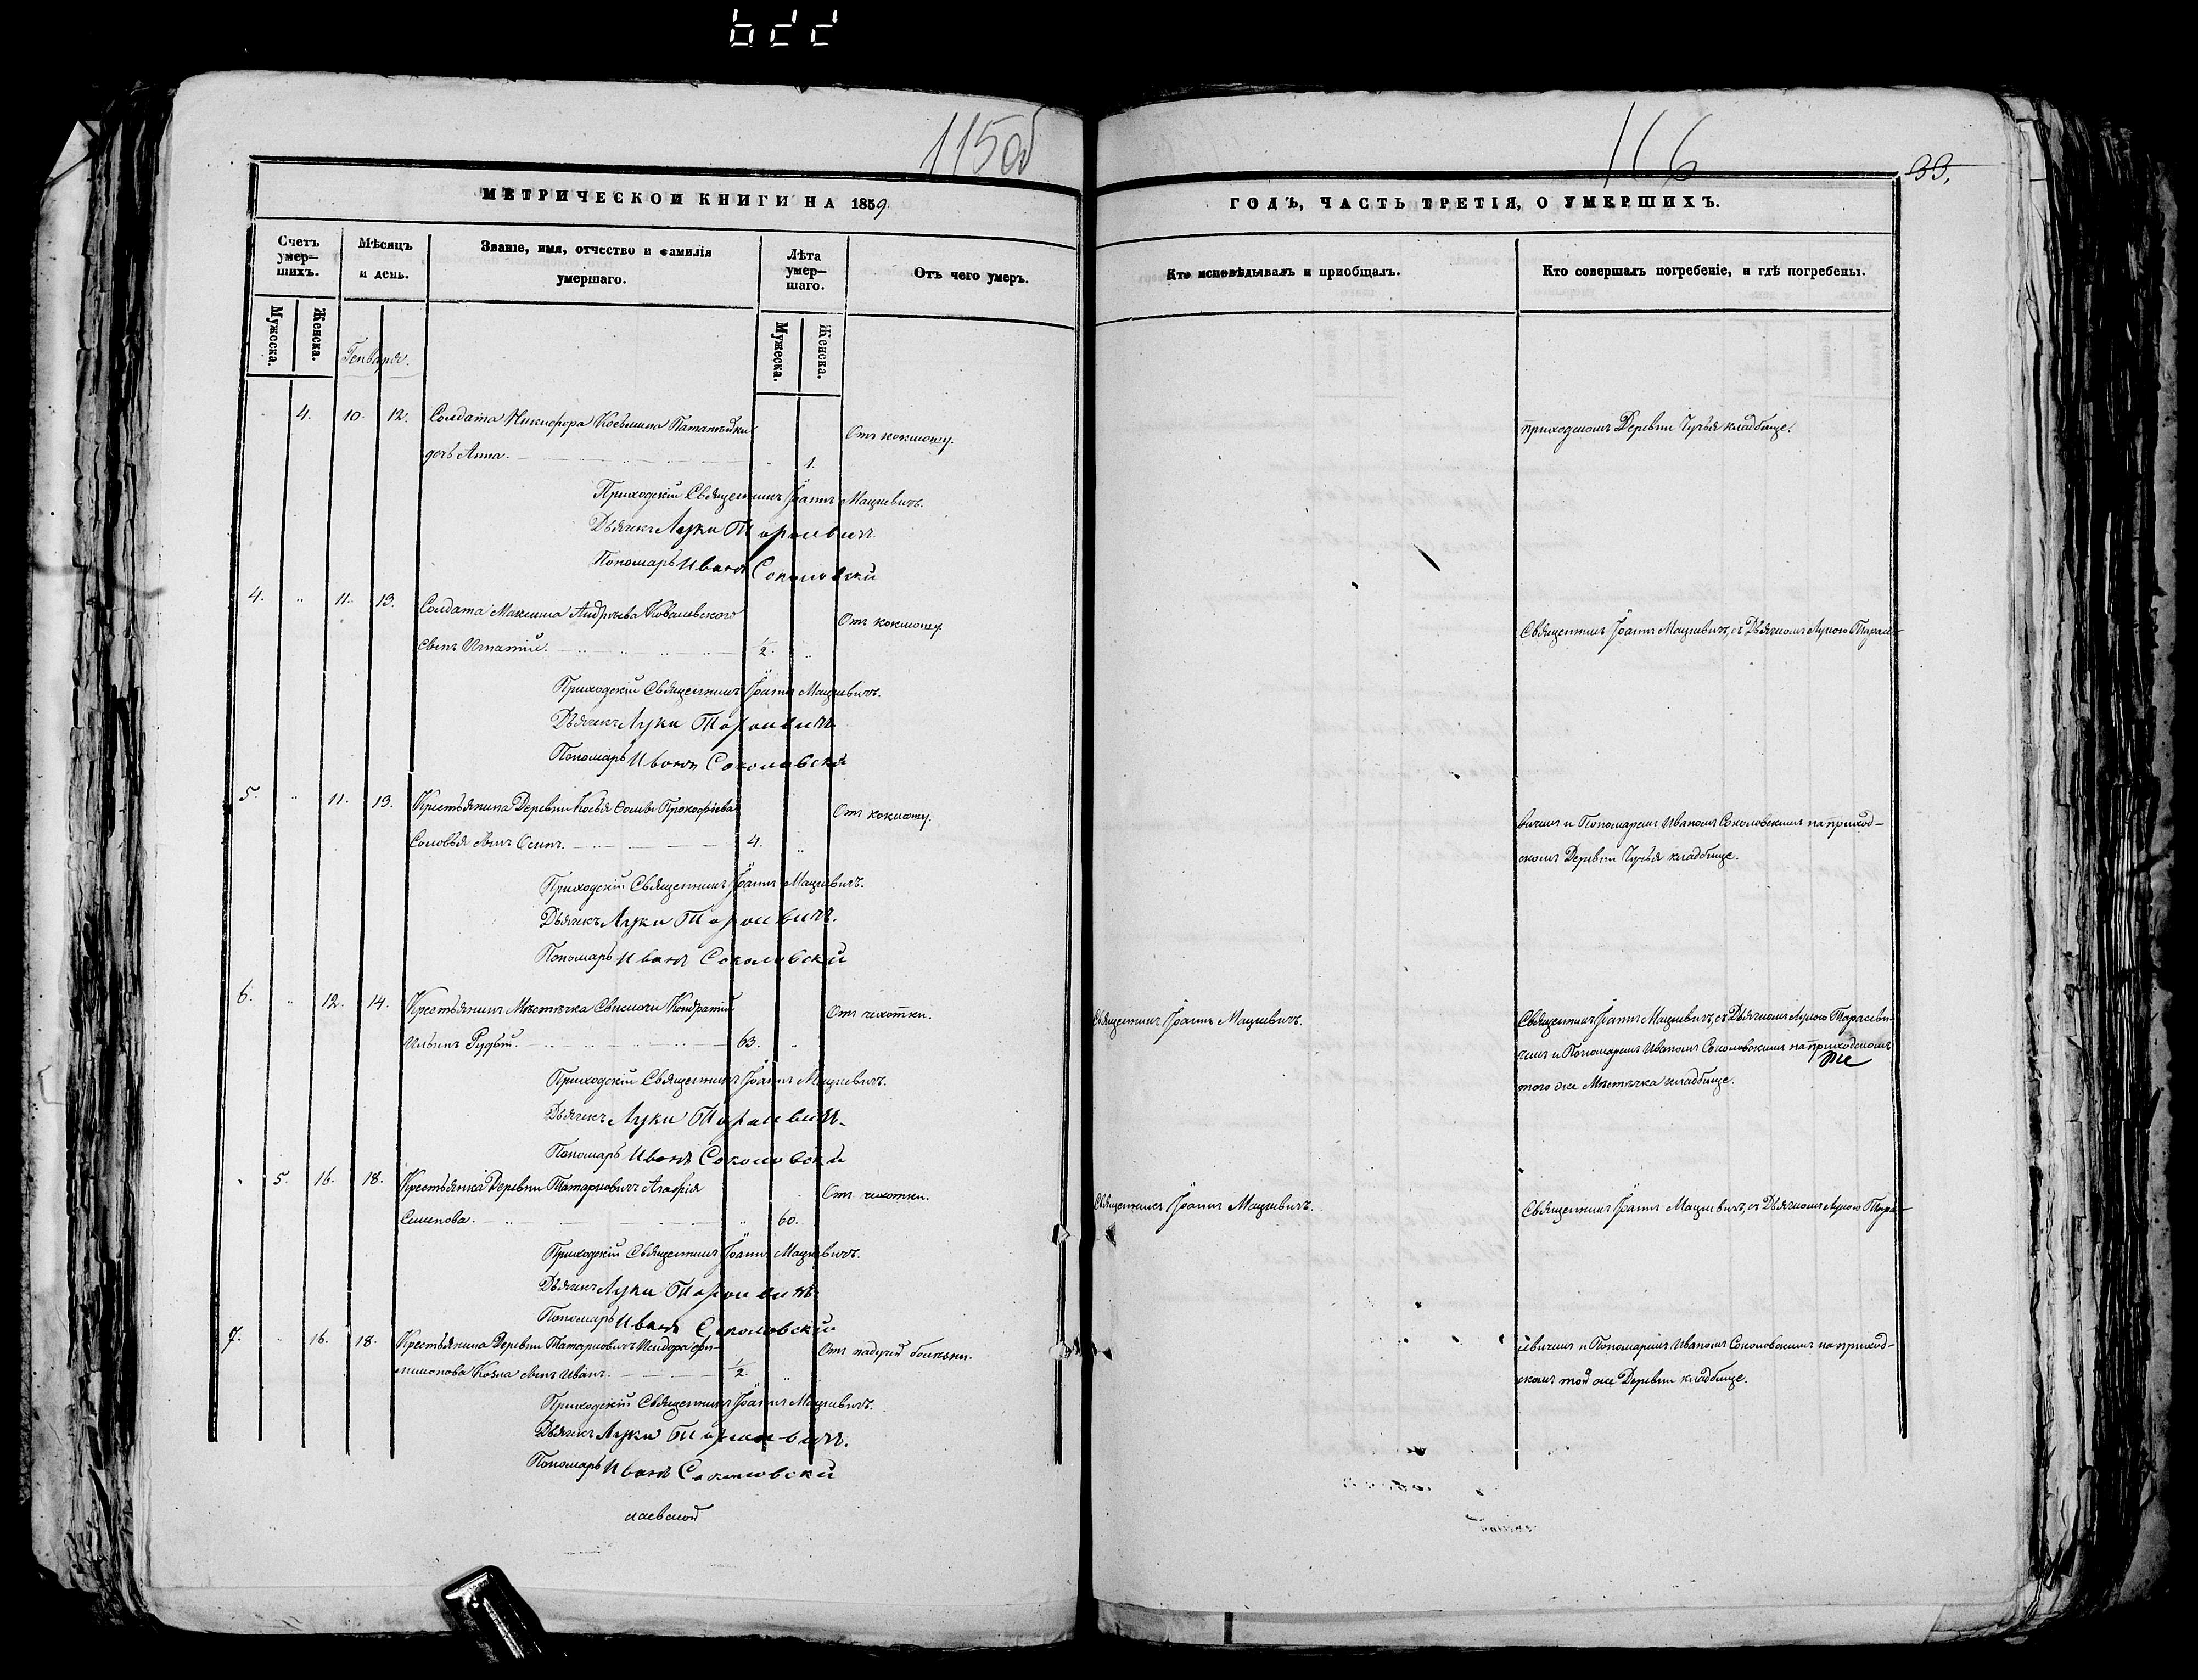 115об
116
33.
МЕТРИЧЕСКОИ КНИГИ НА 1859.
ГОДЪ, ЧАСТЬ ТРЕТІЯ, О УМЕРШИХЪ.
Счетъ умер—шихъ.
Мѣсяцъ и день.
Званіе, имя, отчество и фамилія умершаго.
Лѣта умер—шаго.
Отъ чего умеръ.
Кто исповѣдывалъ и приобщалъ.
Кто совершалъ погребеніе, и гдѣ погребены.
Мужеска.
Женска.
Мужеска.
Женска.
Генваря.
4. 10. 12. Солдата Никифора Косьмина
Отъ коклюшу.
приходскомъ Деревни кладбище.
дочь Анна. 1.
Приходскій Священникъ Іоаннъ Мацкевичъ.
Дьячекъ Лука Тарасевичъ
Пономарь Иванъ Соколовскій
4. " 11. 13. Солдата Максима Андреева Ковалевского
Отъ коклюшу
Священникъ Іоаннъ Мацкевичъ, съ Дьячкомъ Лукою Тарасе-
сынъ Игнатій. 1/2. "
Приходскій Священникъ Іоаннъ Мацкевичъ.
Дьячекъ Лука Тарасевичъ
Пономарь Иванъ Соколовскій
5. " 11. 13. Крестьянина Деревни Прокофіева
Отъ коклюшу.
вичемъ и Пономаремъ Иваномъ Соколовскимъ на приход-
Соловья сынъ Осипъ. 4. "
скомъ Деревни кладбище.
Приходскій Священникъ Іоаннъ Мацкевичъ.
Дьячекъ Лука Тарасевичъ.
Пономарь Иванъ Соколовскій
6. " 12. 14. Крестьянинъ Мѣстечка Свислочи Кондратій
Отъ чахотки.
Священникъ Іоаннъ Мацкевичъ.
Священникъ Іоаннъ Мацкевичъ, съ Дьячкомъ Лукою Тарасеви-
Ильинъ Рудый. 63. "
чемъ и Пономаремъ Иваномъ Соколовскимъ на приходскомъ
того же Мѣстечка кладбище.
Приходскій Священникъ Іоаннъ Мацкевичъ.
Дьячекъ Лука Тарасевичъ.
Пономарь Иванъ Соколовскій
" 5. 16. 18. Крестьянка Деревни Татарковичъ Агафія
Отъ чахотки.
Священникъ Іоаннъ Мацкевичъ.
Священникъ Іоаннъ Мацкевичъ, съ Дьячкомъ Лукою Тара-
Семенова. " 60.
Приходскій Священникъ Іоаннъ Мацкевичъ.
Дьячекъ Лука Тарасевичъ
Пономарь Иванъ Соколовскій
7. " 16. 18. Крестьянина Деревни Татарковичъ Исидора Фи-
Отъ падучей болѣзни.
севичемъ и Пономаремъ Иваномъ Соколовскимъ на приход-
лимонова Козла сынъ Иванъ. 1/2. "
скомъ той же Деревни кладбище.
Приходскій Священникъ Іоаннъ Мацкевичъ.
Дьячекъ Лука Тарасевичъ.
Пономарь Иванъ Соколовскій